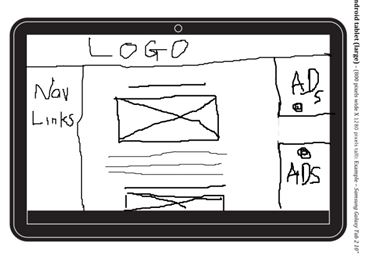 LOGO
Nav
Links
ADs
ADS
ndroid tablet (large) - (800 pixels wide X 1280 pixels tall: Example - Samsung Galaxy Tab 2 10"